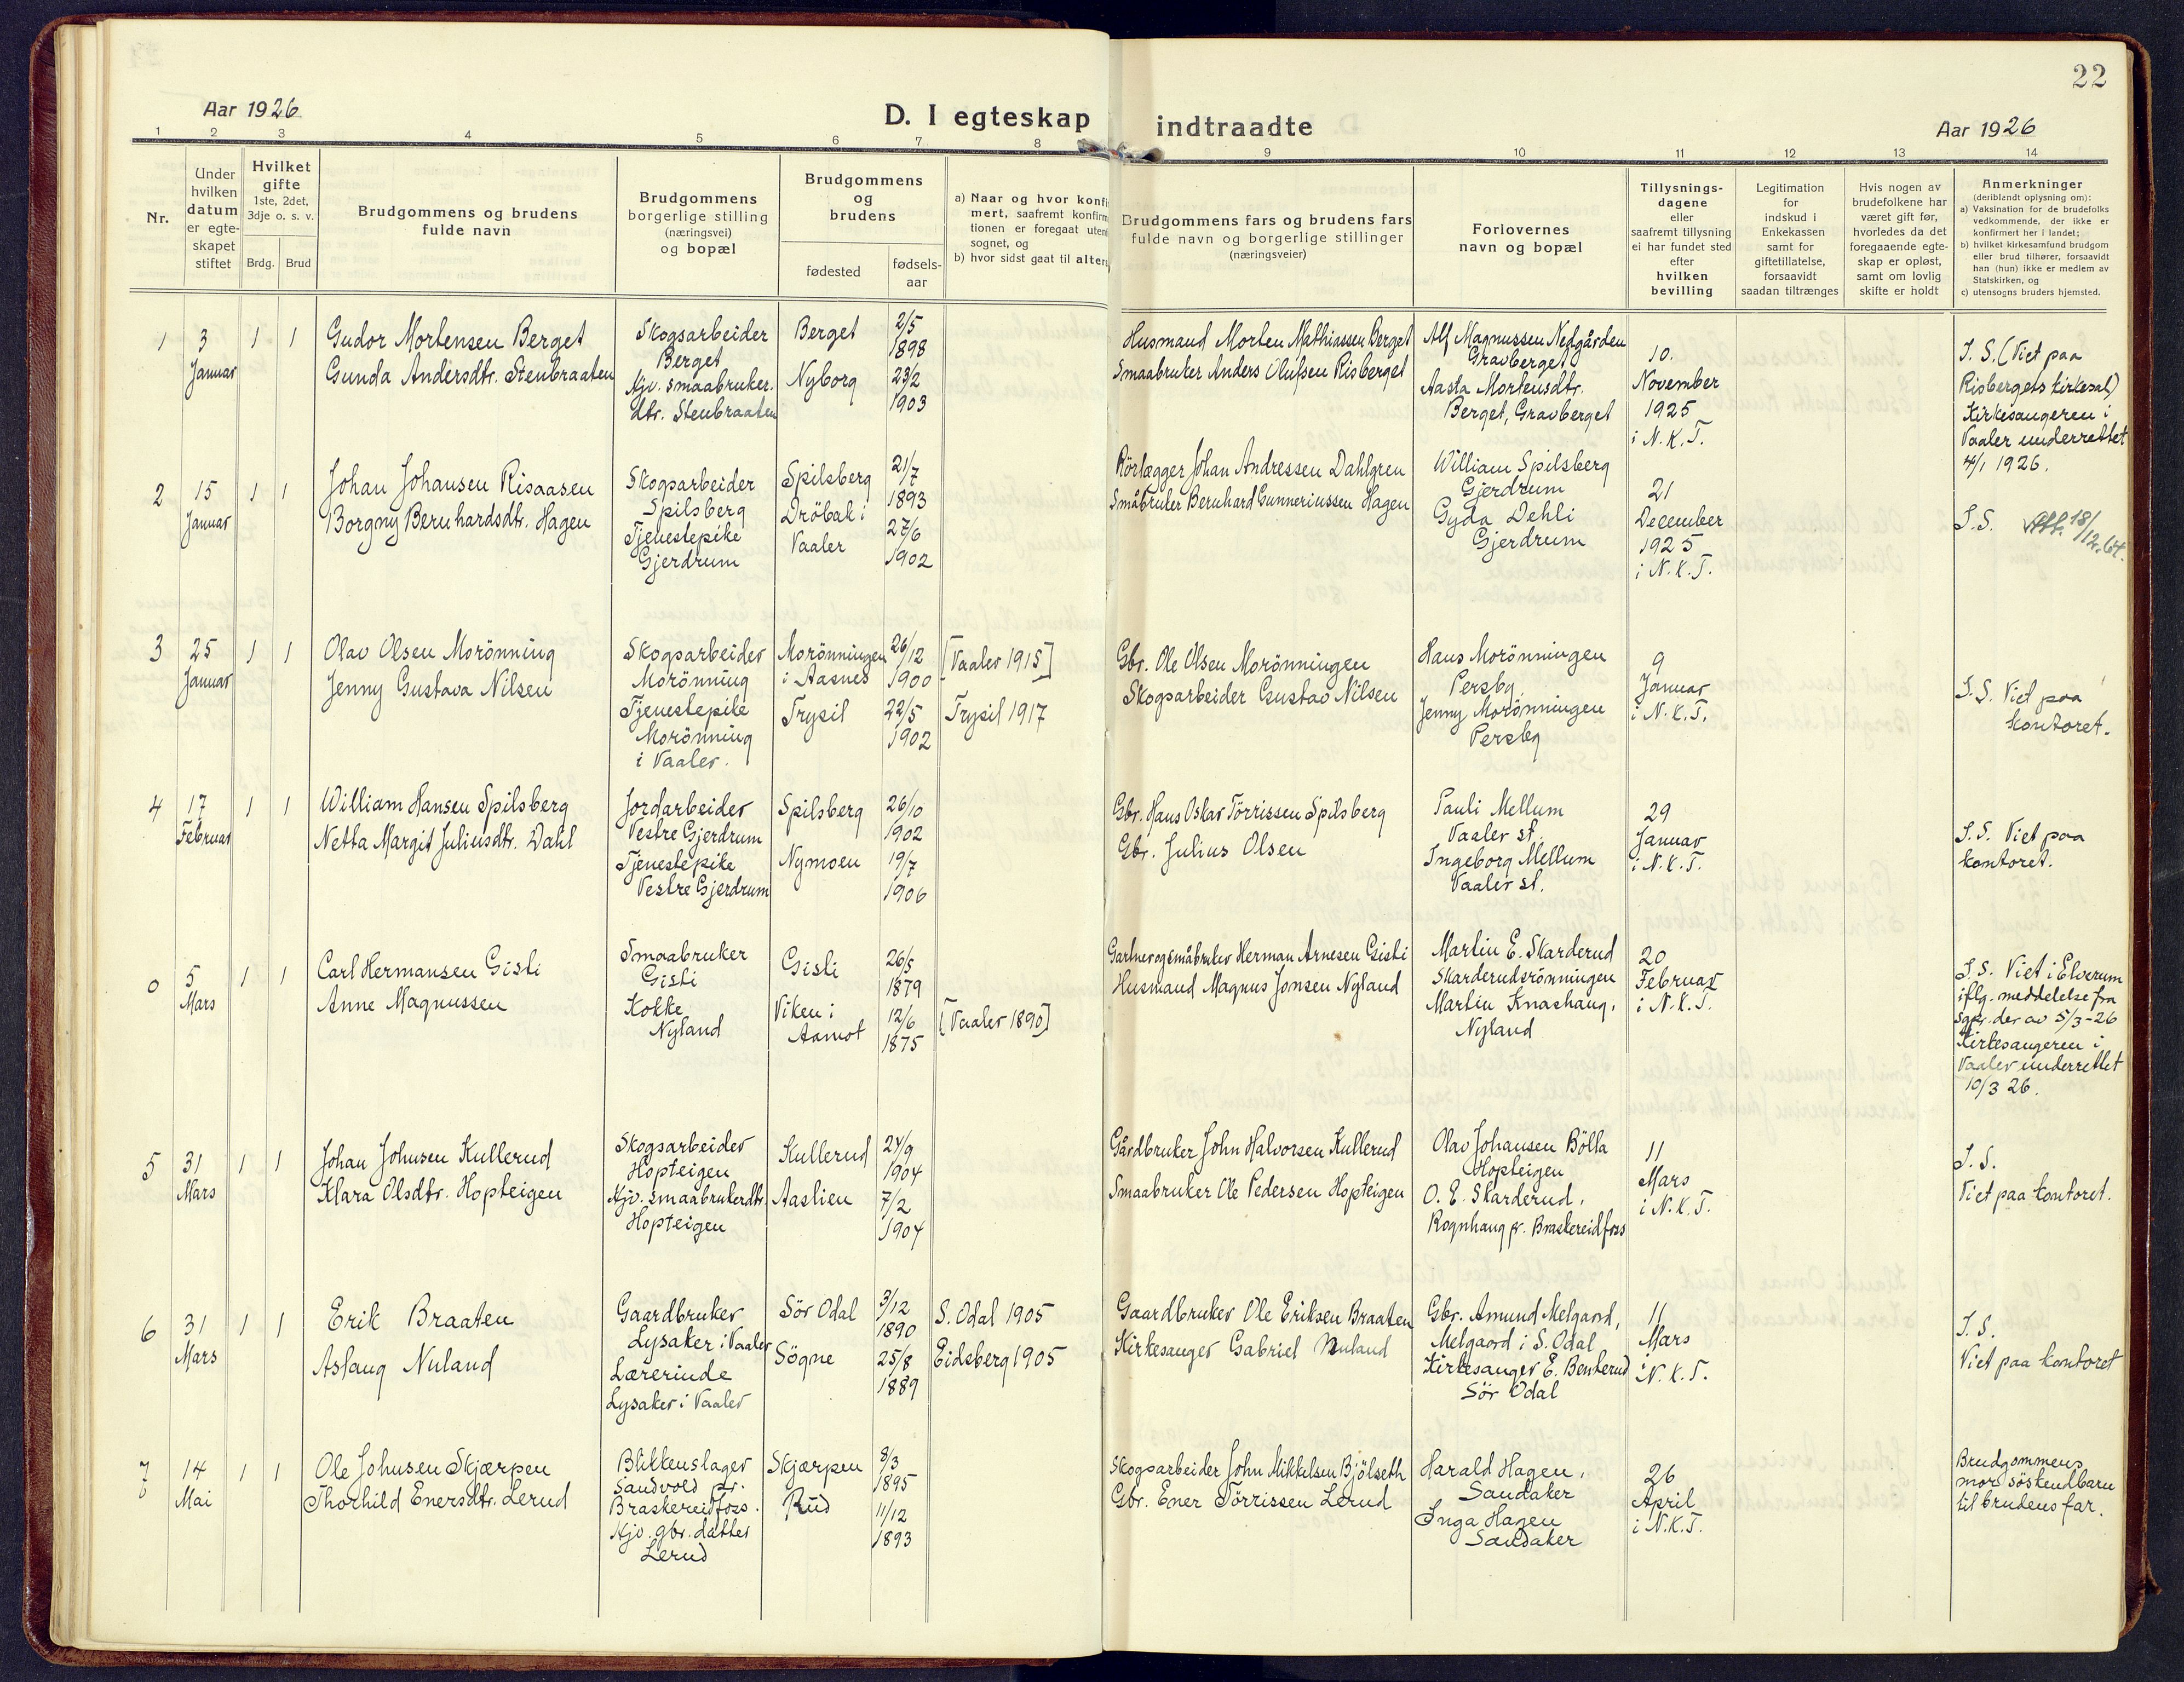 22
Aar 1926
D. I egteskap indtraadte
Aar 1926
1 2 3 4 5 6 7 8 9 10 11 12 13 14
Nr.
Under
hvilken
datum
er egte-
skapet
stiftet
Hvilket
gifte
1ste, 2det,
3dje o. s. v.
Brdg. Brud
Brudgommens og brudens
fulde navn
Brudgommens
borgerlige stilling
(næringsvei)
og bopæl
Brudgommens
og
brudens
fødested
fødsels-
aar
a) Naar og hvor konfi
mert, saafremt konfirm
tionen er foregaat uten
sognet, og
b) hvor sidst gaat til alters
Brudgommens fars og brudens fars
fulde navn og borgerlige stillinger
(næringsveier)
Forlovernes
navn og bopæl
Tillysnings-
dagene
eller
saafremt tillysning
ei har fundet sted
efter
hvilken
bevilling
Legitimation
for
indskud i
Enkekassen
samt for
giftetillatelse,
forsaavidt
saadan tiltrænges
Hvis nogen av
brudefolkene har
været gift før,
hvorledes da det
foregaaende egte-
skap er opløst,
samt om lovlig
skifte er holdt
Anmerkninger
(deriblandt oplysning om):
a) Vaksination for de brudefolks
vedkommende, der ikke er
konfirmert her i landet;
b) hvilket kirkesamfund brudgom
eller brud tilhører, forsaavidt
han (hun) ikke er medlem av
Statskirken, og
c) utensogns bruders hjemsted.
1
3
Januar
1 1
Gudor Mortensen Berget
Gunda Andersdtr. Stenbraaten
Skogsarbeider
Berget
Hjv. smaabruker.
dtr. Stenbraaten
Berget
Nyborg
2/5
1898
23/2
1903
Husmand Morten Mathiassen Berget
Smaabruker Anders Olufsen Risberget
Alf Magnussen Nedgården
Gravberget
Aasta Mortensdtr.
Berget, Gravberget
10.
November
1925
i N.K.T.
I. S. (Viet paa
Risbergets kirkesal)
Kirkesangeren i
Vaaler underrettet
4/1 1926.
2
15
Januar
1 1
Johan Johansen Risaasen
Borgny Bernhardsdtr. Hagen
Skogsarbeider
Spilsberg
Tjenestepike
Gjerdrum
Spilsberg
Dröbak i
Vaaler
21/7
1893
27/6
1902
Rörlægger Johan Andressen Dahlgren
Småbruker Bernhard Gunneriussen Hagen
William Spilsberg
Gjerdrum
Gyda Dehli
Gjerdrum
21
December
1925
i N.K.T.
I.S. 18/12.64.
3
25
Januar
1 1
Olav Olsen Morönning
Jenny Gustava Nilsen
Skogsarbeider
Morönning
Tjenestepike
Morönning
i Vaaler.
Morönningen
i Aasnes
Trysil
26/12
1900
22/5
1902
[Vaaler 1915]
Trysil 1917
Gbr. Ole Olsen Morönningen
Skogsarbeider Gustav Nilsen
Hans Morönningen
Persby.
Jenny Morönningen
Persby
9
Januar
i N.K.T.
I.S. Viet paa
kontoret.
4
17
Februar
1 1
William Hansen Spilsberg
Netta Margit Juliusdtr. Dahl
Jordarbeider
Vestre Gjerdrum
Tjenestepike
Vestre Gjerdrum
Spilsberg
Nymoen
26/10
1902
19/7
1906
Gbr. Hans Oskar Törrissen Spilsberg
Gbr. Julius Olsen
Pauli Mellum
Vaaler st.
Ingeborg Mellum
Vaaler st.
29
Januar
i N.K.T.
I.S. Viet paa
kontoret.
0
5
Mars
1 1
Carl Hermansen Gisti
Anne Magnussen
Smaabruker
Gisti
Kokke
Nyland
Gisti
Viken i
Aamot
26/5
1879
12/6
1875
[Vaaler 1890]
Gartner og småbruker Herman Arnesen Gisti
Husmand Magnus Jonsen Nyland
Martin E. Skarderud
Skarderudsrönningen
Martin Knashaug,
Nyland
20
Februar
i N.K.T.
I.S. Viet i Elverum
iflg. meddelelse fra
Sgpr. der av 5/3-26
Kirkesangeren i
Vaaler underrettet
10/3 26.
5
31
Mars
1 1
Johan Johnsen Kullerud
Klara Olsdtr. Hopteigen
Skogsarbeider
Hopteigen
Hjv. smaabrukerdtr.
Hopteigen
Kullerud
Aaslien
24/9
1904
7/2
1904
Gårdbruker John Halvorsen Kullerud
Smaabruker Ole Pedersen Hopteigen
Olav Johansen Bölla
Hopteigen
O. E. Skarderud,
Rognhaug pr. Braskereidfoss
11
Mars
i N.K.T.
I.S.
Viet paa kontoret.
6
31
Mars
1 1
Erik Braaten
Aslaug Nuland
Gaardbruker
Lysaker i Vaaler
Lærerinde
Lysaker i Vaaler
Sör Odal
Sögne
3/12
1890
25/8
1889
S. Odal 1905
Eidsberg 1905
Gaardbruker Ole Eriksen Braaten
Kirkesanger Gabriel Nuland
Gbr. Amund Melgaard,
Melgaard i S. Odal
Kirkesanger E. Benterud
Sör Odal
11
Mars
i N.K.T.
I.S.
Viet paa kontoret
7
14
Mai
1 1
Ole Johnsen Skjærpen
Thorhild Enersdtr. Lerud
Blikkenslager
Sandvold pr.
Braskereidfoss.
Hjv. gbr. datter
Lerud
Skjærpen
Rud
8/3
1895
11/12
1893
Skogsarbeider John Mikkelsen Bjölseth
Gbr. Ener Törrissen Lerud
Harald Hagen,
Sandaker
Inga Hagen
Sandaker
26
April
i N.K.T.
Brudgommens
mor söskendbarn
til brudens far.